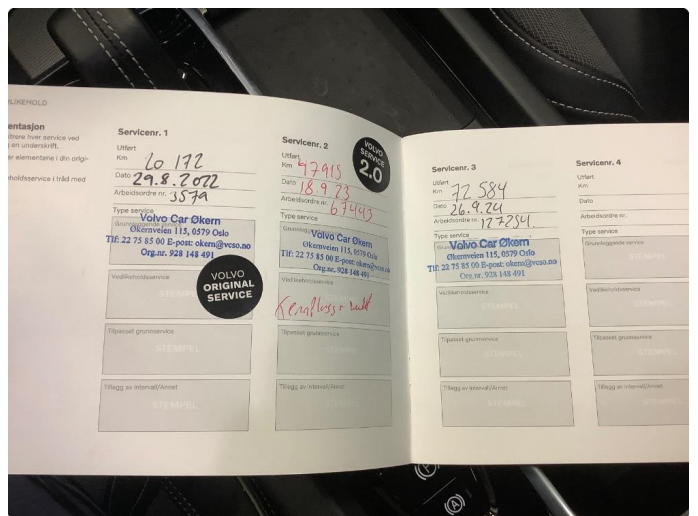 LIKEHOLD
entasjon
trere hver service ved
en underskrift.
er elementene i din origi-
nholdsservice i tråd med
Servicenr. 1
Utført
Km 20 172
Dato 29.8.2022
Arbeidsordre nr. 3579
Type service
Volvo Car Økern
Økernveien 115, 0579 Oslo
Tlf: 22 75 85 00 E-post: okern@vcso.no
Org.nr. 928 148 491
Vedlikeholdsservice
VOLVO
ORIGINAL
SERVICE
Tilpasset grunnservice
STEMPEL
Tillegg av intervall/Annet
STEMPEL
Servicenr. 2
VOLVO
SERVICE
2.0
Utført
Km 47915
Dato 18.9.23
Arbeidsordre nr. 67443
Type service
Volvo Car Økern
Økernveien 115, 0579 Oslo
Tlf: 22 75 85 00 E-post: okern@vcso.no
Org.nr. 928 148 491
Vedlikeholdsservice
Tilpasset grunnservice
STEMPEL
Tillegg av intervall/Annet
STEMPEL
Servicenr. 3
Utført
Km 72 584
Dato 26.9.24
Arbeidsordre nr. 127254
Type service
Volvo Car Økern
Økernveien 115, 0579 Oslo
Tlf: 22 75 85 00 E-post: okern@vcso.no
Org.nr. 928 148 491
Vedlikeholdsservice
Tilpasset grunnservice
STEMPEL
Tillegg av intervall/Annet
STEMPEL
Servicenr. 4
Utført
Km
Dato
Arbeidsordre nr.
Type service
Grunnleggende service
Vedlikeholdsservice
Tilpasset grunnservice
Tillegg av intervall/Annet